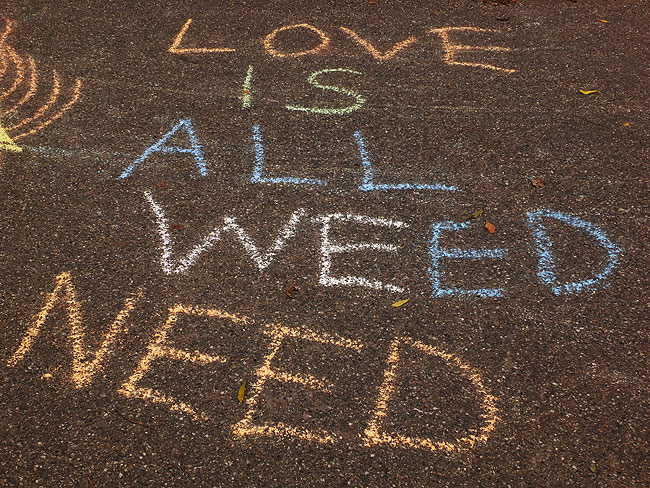 LOVE
IS
ALL
WEED
NEED